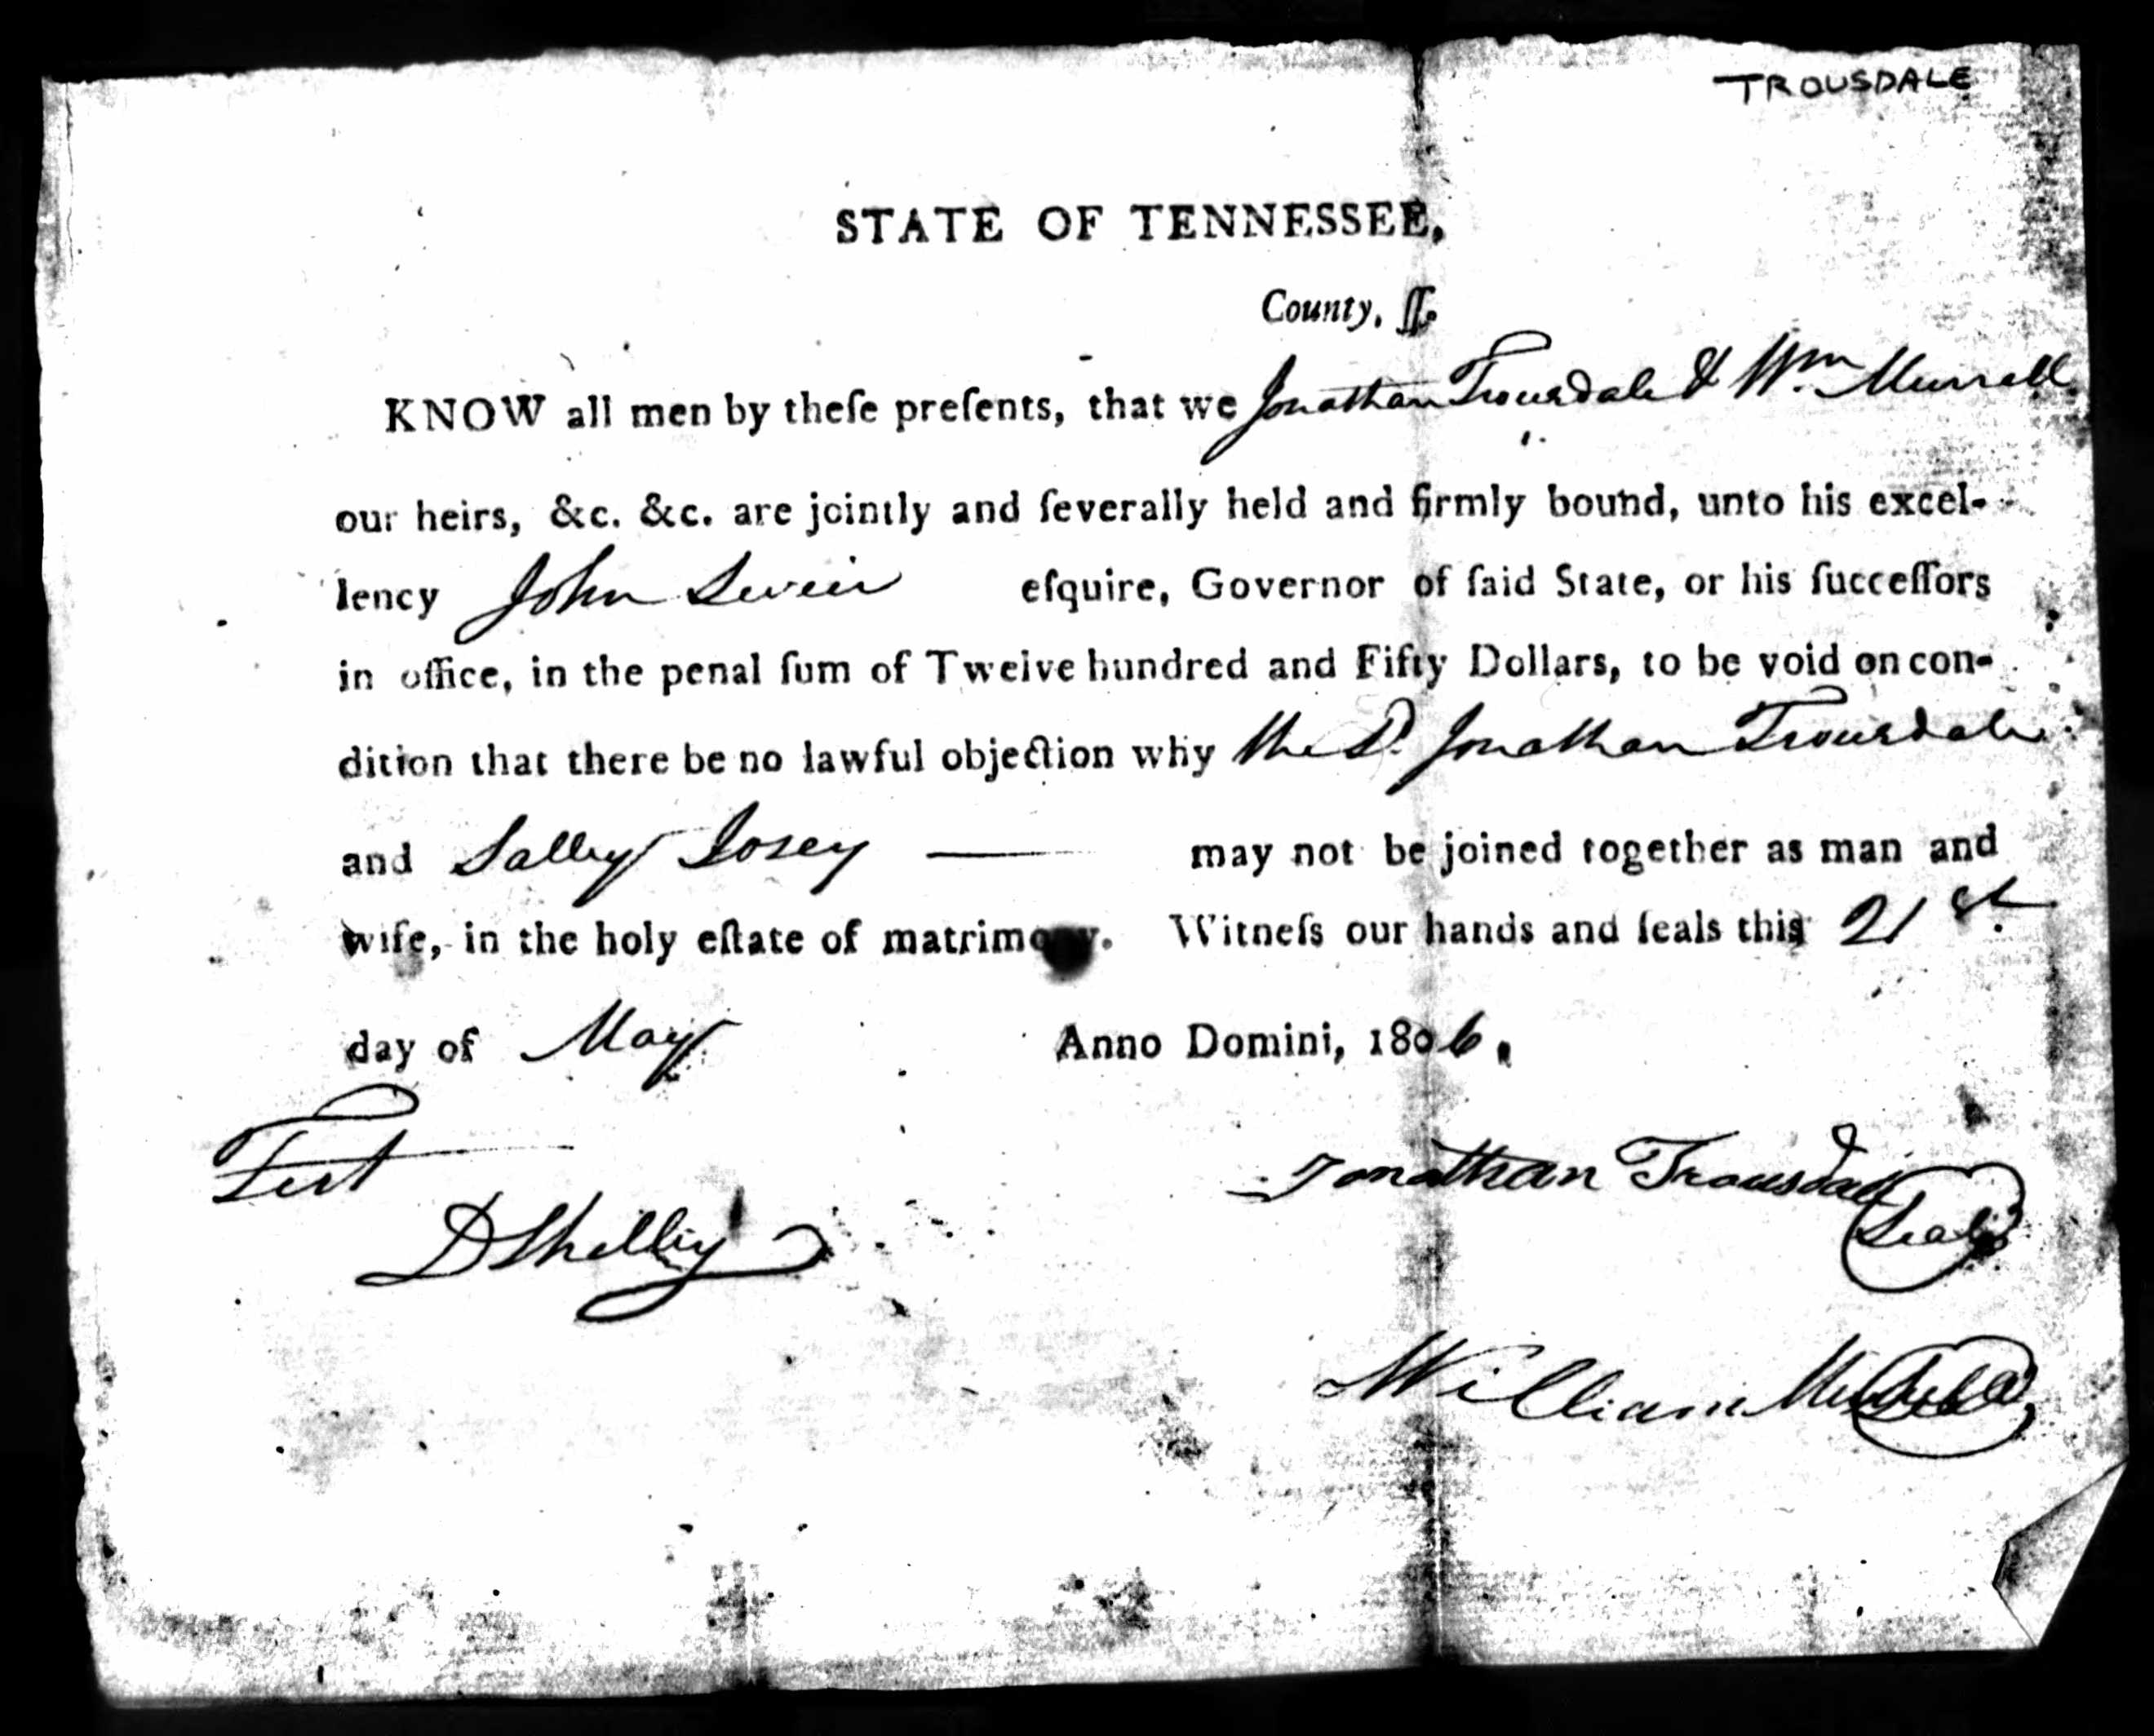 TROUSDALE
STATE OF TENNESSEE,
County, ſſ.
KNOW all men by theſe preſents, that we Jonathan Trousdale & Wm Murrell
our heirs, &c. &c. are jointly and ſeverally held and firmly bound, unto his excel-
lency John Sevier eſquire, Governor of ſaid State, or his ſucceſſors
in office, in the penal ſum of Twelve hundred and Fifty Dollars, to be void on con-
dition that there be no lawful objection why the Sd. Jonathan Trousdale
and Salley Josey — may not be joined together as man and
wife, in the holy eſtate of matrimony. Witneſs our hands and ſeals this 21st.
day of May Anno Domini, 1806.
Test
Jonathan Trousdale Seal
DShelby
William Seal